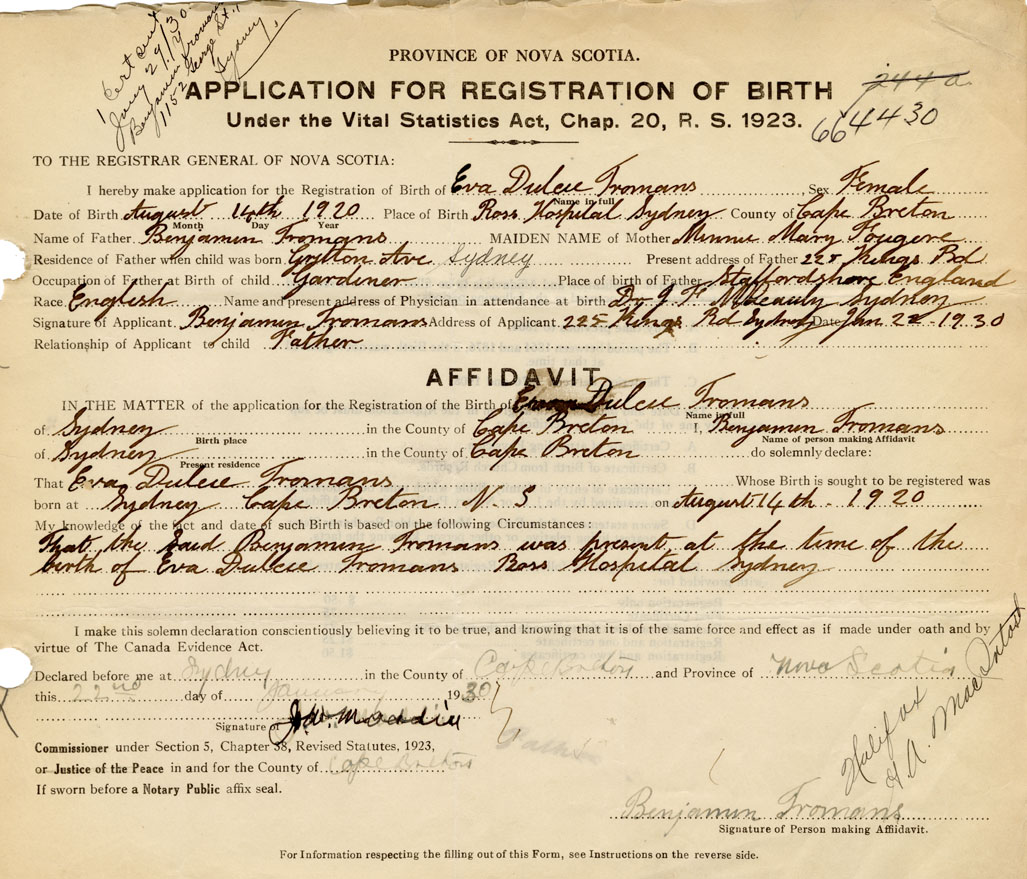 1 Cert sent
Jany 29/30
Benjamin Fromans
1152 George St.,
Sydney
PROVINCE OF NOVA SCOTIA.
APPLICATION FOR REGISTRATION OF BIRTH
244a
Under the Vital Statistics Act, Chap. 20, R. S. 1923.
664430
TO THE REGISTRAR GENERAL OF NOVA SCOTIA:
I hereby make application for the Registration of Birth of Eva Dulcie Fromans Sex Female
Name in full
Date of Birth August 14th 1920 Place of Birth Ross Hospital Sydney County of Cape Breton
Month Day Year
Name of Father Benjamin Fromans MAIDEN NAME of Mother Minnie Mary Fougere
Residence of Father when child was born Ave Sydney Present address of Father 225 Kings Rd
Occupation of Father at Birth of child Gardiner Place of birth of Father Staffordshore England
Race English Name and present address of Physician in attendance at birth Dr J F Macauly Sydney
Signature of Applicant Benjamin Fromans Address of Applicant 225 Kings Rd Sydney Date Jan 22 - 1930
Relationship of Applicant to child Father
AFFIDAVIT
IN THE MATTER of the application for the Registration of the Birth of Eva Dulcie Fromans
Name in full
of Sydney in the County of Cape Breton I, Benjamin Fromans
Birth place Name of person making Affidavit
of Sydney in the County of Cape Breton do solemnly declare:
Present residence
That Eva Dulcie Fromans Whose Birth is sought to be registered was
born at Sydney Cape Breton N. S on August 14th - 1920
My knowledge of the fact and date of such Birth is based on the following Circumstances:
That the Said Benjamin Fromans was present at the time of the
birth of Eva Dulcie Fromans Ross Hospital Sydney
I make this solemn declaration conscientiously believing it to be true, and knowing that it is of the same force and effect as if made under oath and by
virtue of The Canada Evidence Act.
Declared before me at Sydney in the County of Cape Breton and Province of Nova Scotia
this 22nd day of January 1930
Signature of J. W. Maddin
Commissioner under Section 5, Chapter 38, Revised Statutes, 1923,
or Justice of the Peace in and for the County of Cape Breton
If sworn before a Notary Public affix seal.
Halifax
A. MacIntosh
Benjamin Fromans
Signature of Person making Affidavit.
For Information respecting the filling out of this Form, see Instructions on the reverse side.